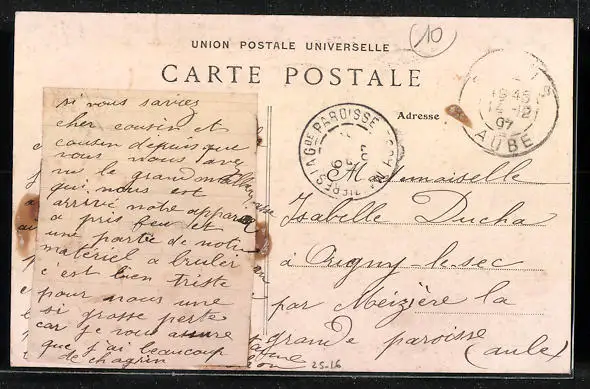 10
UNION POSTALE UNIVERSELLE
CARTE POSTALE
Adresse
1945
2-12
07
AUBE
PAROISSE
si vous saviez
cher cousin et
cousin depuis que
vous nous avez
vu le grand malheur
qui nous est
arrivé notre appareil
a pris feu et
une partie de notre
matériel a bruler
c est bien triste
pour nous une
si grosse perte
car je vous assure
que j'ai beaucoup
de chagrin
Mademoiselle
Isabelle Ducha
à Origny-le-sec
par Méizière la
grande paroisse
(aube)
25-16